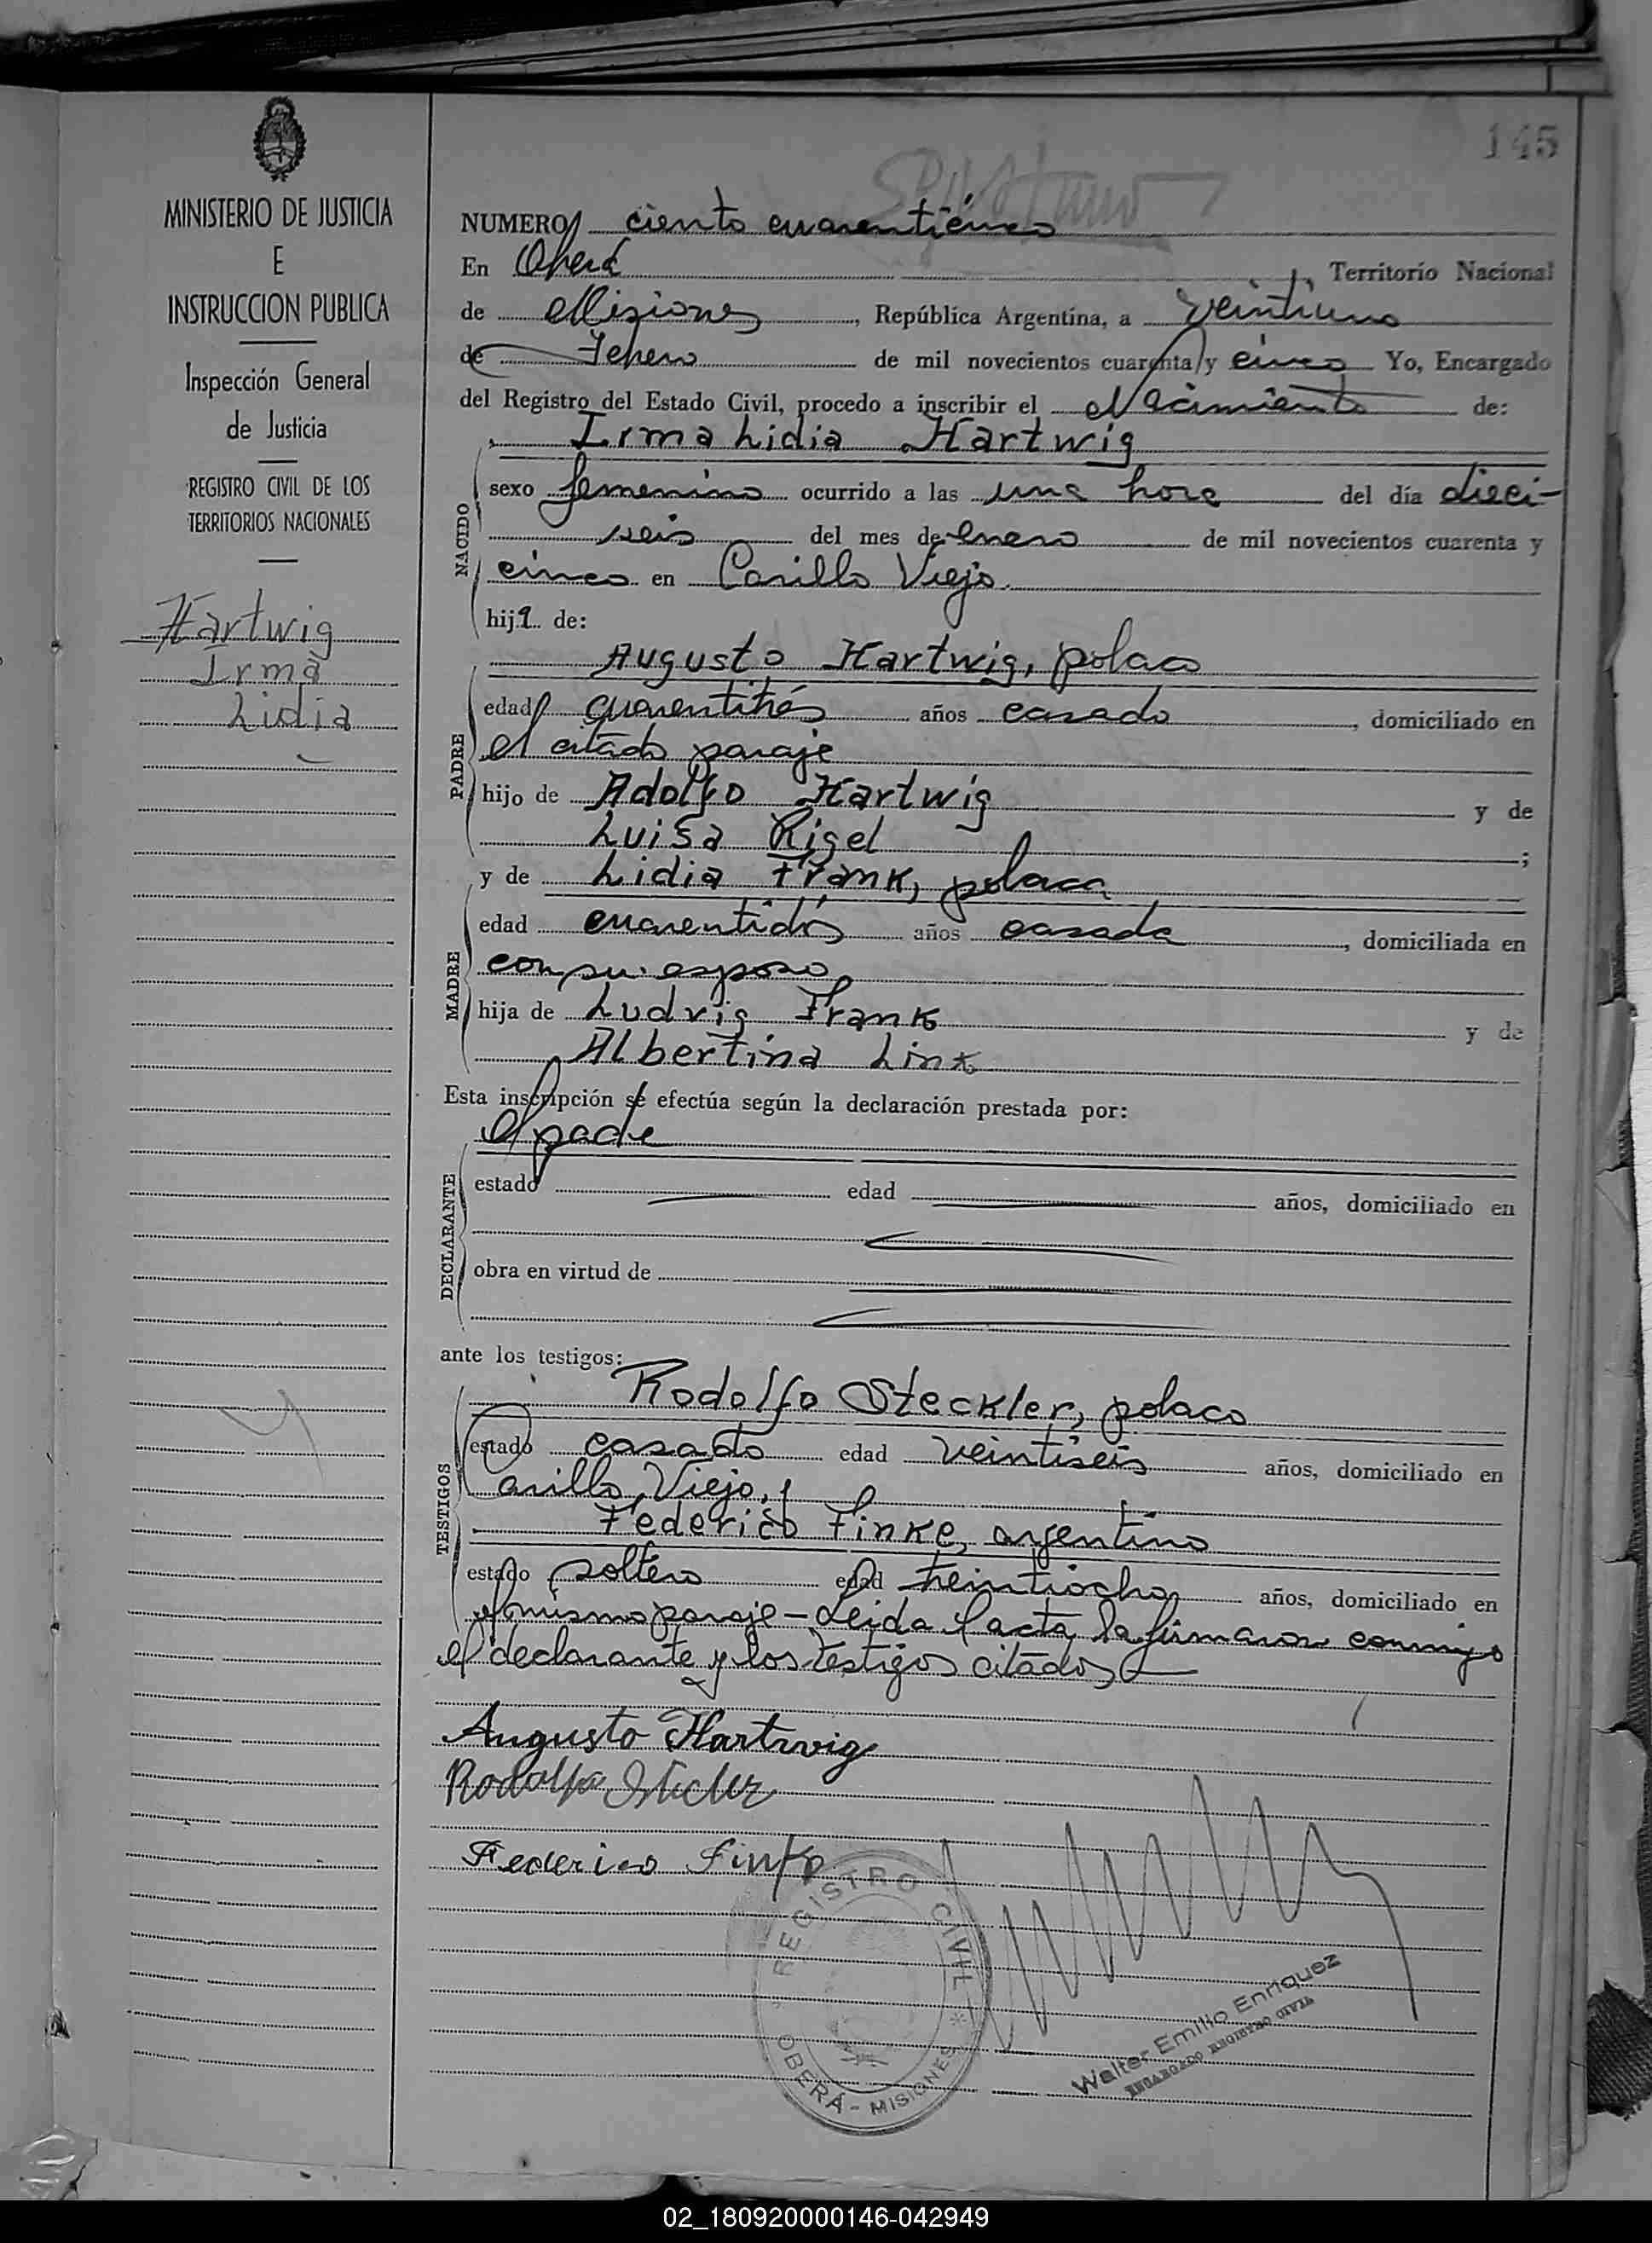 145
MINISTERIO DE JUSTICIA
E
INSTRUCCION PUBLICA
Inspección General
de Justicia
REGISTRO CIVIL DE LOS
TERRITORIOS NACIONALES
Hartwig
Irma
Lidia
NUMERO ciento cuarenticinco
En Oberá, Territorio Nacional
de Misiones, República Argentina, a veintiuno
de Febrero de mil novecientos cuarenta y cinco Yo, Encargado
del Registro del Estado Civil, procedo a inscribir el Nacimiento de:
Irma Lidia Hartwig
NACIDO
sexo femenino ocurrido a las una hora del día dieci-
seis del mes de enero de mil novecientos cuarenta y
cinco en Carillo Viejo.
hija de:
Augusto Hartwig, polaco
PADRE
edad cuarentitrés años casado, domiciliado en
el citado paraje
hijo de Adolfo Hartwig y de
Luisa Rigel;
y de Lidia Frank, polaca
MADRE
edad cuarentidós años casada, domiciliada en
con su esposo,
hija de Ludvig Frank y de
Albertina Link
Esta inscripción se efectúa según la declaración prestada por:
el padre
DECLARANTE
estado edad años, domiciliado en
obra en virtud de
ante los testigos:
Rodolfo Steckler, polaco
TESTIGOS
estado casado edad veintiseis años, domiciliado en
Carillo Viejo, y
Federico Finke, argentino
estado soltero edad treintiocho años, domiciliado en
el mismo paraje - Leida l acta, la firmaron conmigo
el declarante y los testigos citados
Augusto Hartwig
Federico Finke
REGISTRO CIVIL
OBERÁ - MISIONES
Walter Emilio Enriquez
ENCARGADO REGISTRO CIVIL
02_180920000146-042949